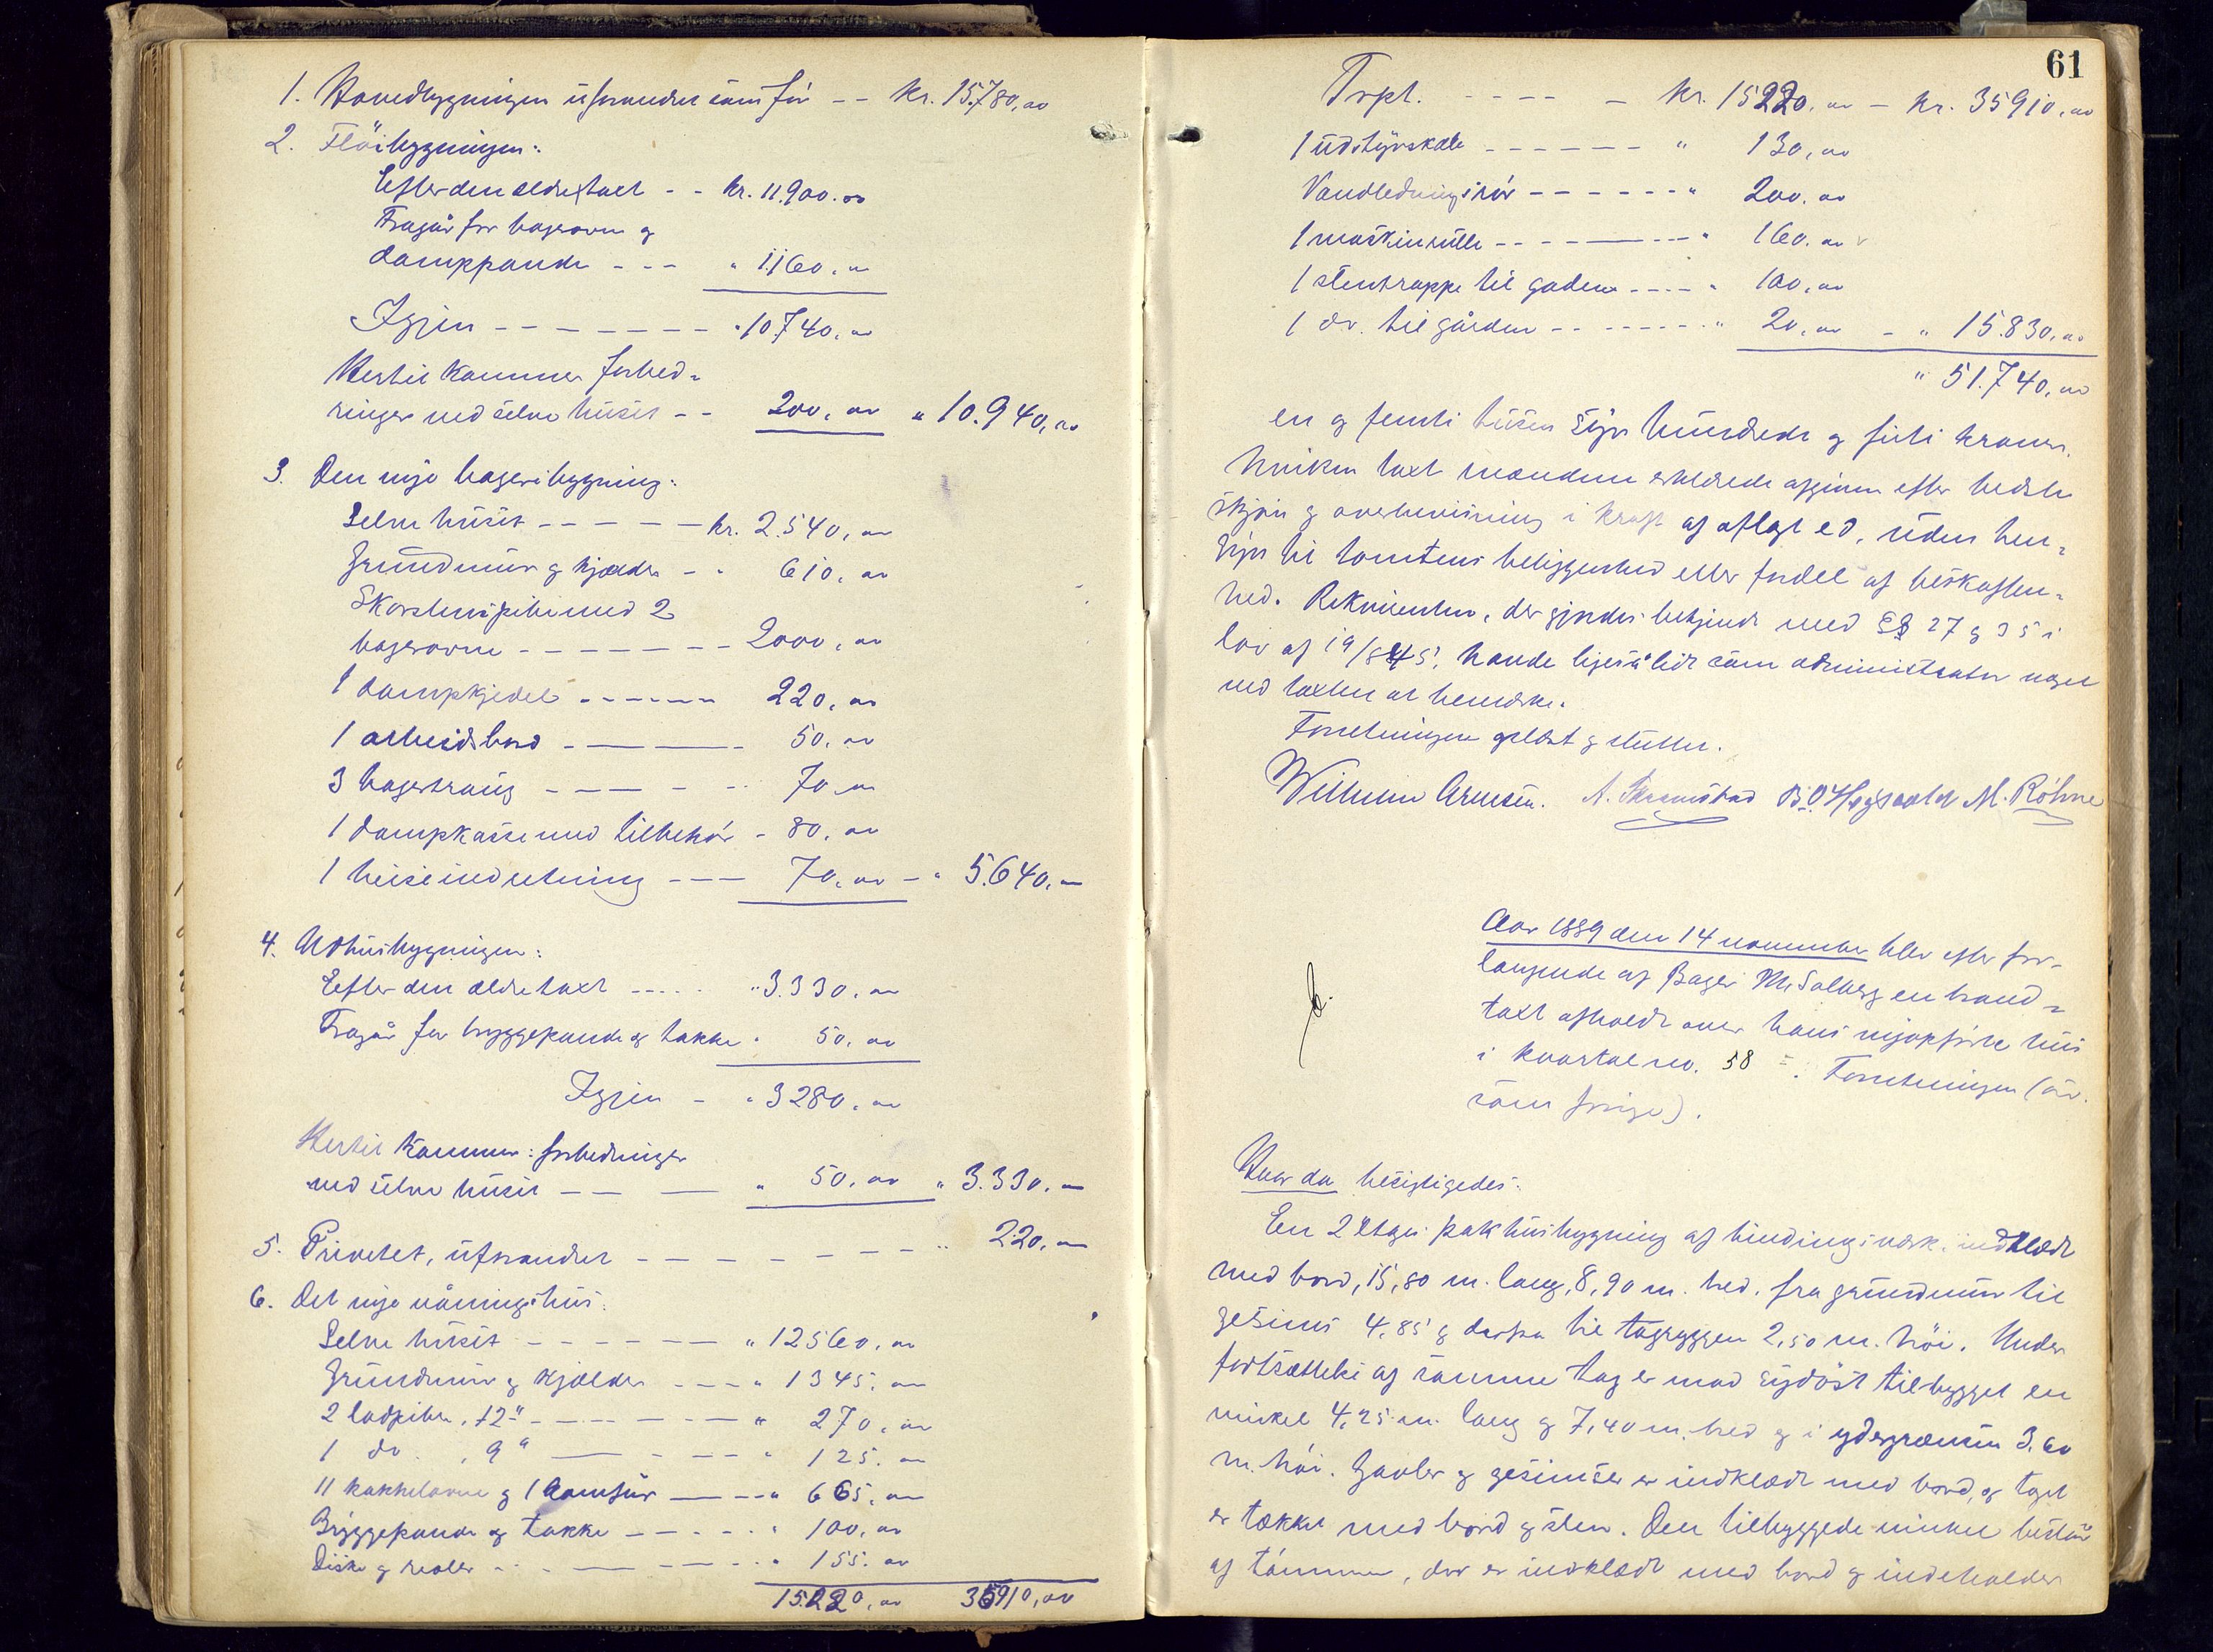 1. Hovedbygningen uforandret som før -- kr. 15.780,00
2. Fløibygningen:
Efter den ældre taxt -- kr. 11.900.00
Fragår for bagerovn og
damppande --- " 1.160,00
Igjen -------- " 10.740,00
Hertil kommer forbed-
ringer ved selve huset -- 200,00 " 10.940,00
3. Den nye bageribygning:
Selve huset ----- kr. 2.540,00
Grundmur og kjælder - " 610,00
Skorstenspibe med 2
bagerovne ------- 2000,00
1 dampkjedel ------ 220,00
1 arbeidsbord ------ 50,00
3 bagertraug ---- 70,00
1 dampkasse med tilbehør - 80,00
1 heiseindretning --- 70,00 - " 5.640,00
4. Udhusbygningen:
Efter den ældre taxt ----- " 3.330,00
Fragår for bryggepande og takke " 50,00
Igjen - " 3280,00
Hertil kommer: forbedringer
ved selve huset --- " 50,00 " 3.330,00
5. Privetet, uforandret -------- " 220,00
6. Det nye våningshus:
Selve huset ------ " 12560,00
Grundmur og kjælder ---- " 1345,00
2 ladpiber, 12" ------ " 270,00
1 do. , 9" ----- " 125,00
11 kakkelovne og 1 komfur ---- " 665,00
Bryggepande og takke ----- " 100,00
Diske og reoler ------ " 155,00
15.220,00 35910,00
61
Trpt. ---- - kr. 15220,00 - kr. 35910,00
1 udstyrskåle ------ " 130,00
Vandledningsrør ------ " 200,00
1 maskinrulle ------ " 160,00
1 stentrappe til gaden ---- " 100,00
1 do. til gården ------- " 20,00 - " 15.830,00
" 51.740,00
en og femti tusen syv hundrede og firti kroner.
Hvilken taxt mændene erklærede afgiven efter bedste
skjøn og overbevisning i kraft af aflagt ed, uden hen-
syn til tomtens beliggenhed eller fordel af beskaffen-
hed. Rekvirenten, der gjordes bekjendt med §§ 27 og 35 i
lov af 19/8 45, havde ligesålidt som administrator noget
ved taxten at bemærke.
Forretningen oplæst og sluttet.
Wilhelm Arnesen. A. Skramstad B.O. M. Röhne
Aar 1889 den 14 november blev efter for-
langende af Bager M. Solberg en brand-
taxt afholdt over hans nyopførte hus
i kvartal no. 58 =. Forretningen (
som forrige).
Hvor da besigtigedes:
En 2 etages pakhusbygning af bindingsværk, indklædt
med bord, 15,80 m. lang, 8,90 m. bred, fra grundmur til
gesims 4,85 og derfra til tagryggen 2,50 m. høi. Under
fortsættelse af samme tag er mod sydøst tilbygget en
vinkel 4,25 m. lang og 7,40 m. bred og i ydergrændsen 3,60
m. høi. Gavler og gesimser er indklædt med bord, og taget
er tækket med bord og sten. Den tilbyggede vinkel består
af tømmer, der er indklædt med bord og indeholder